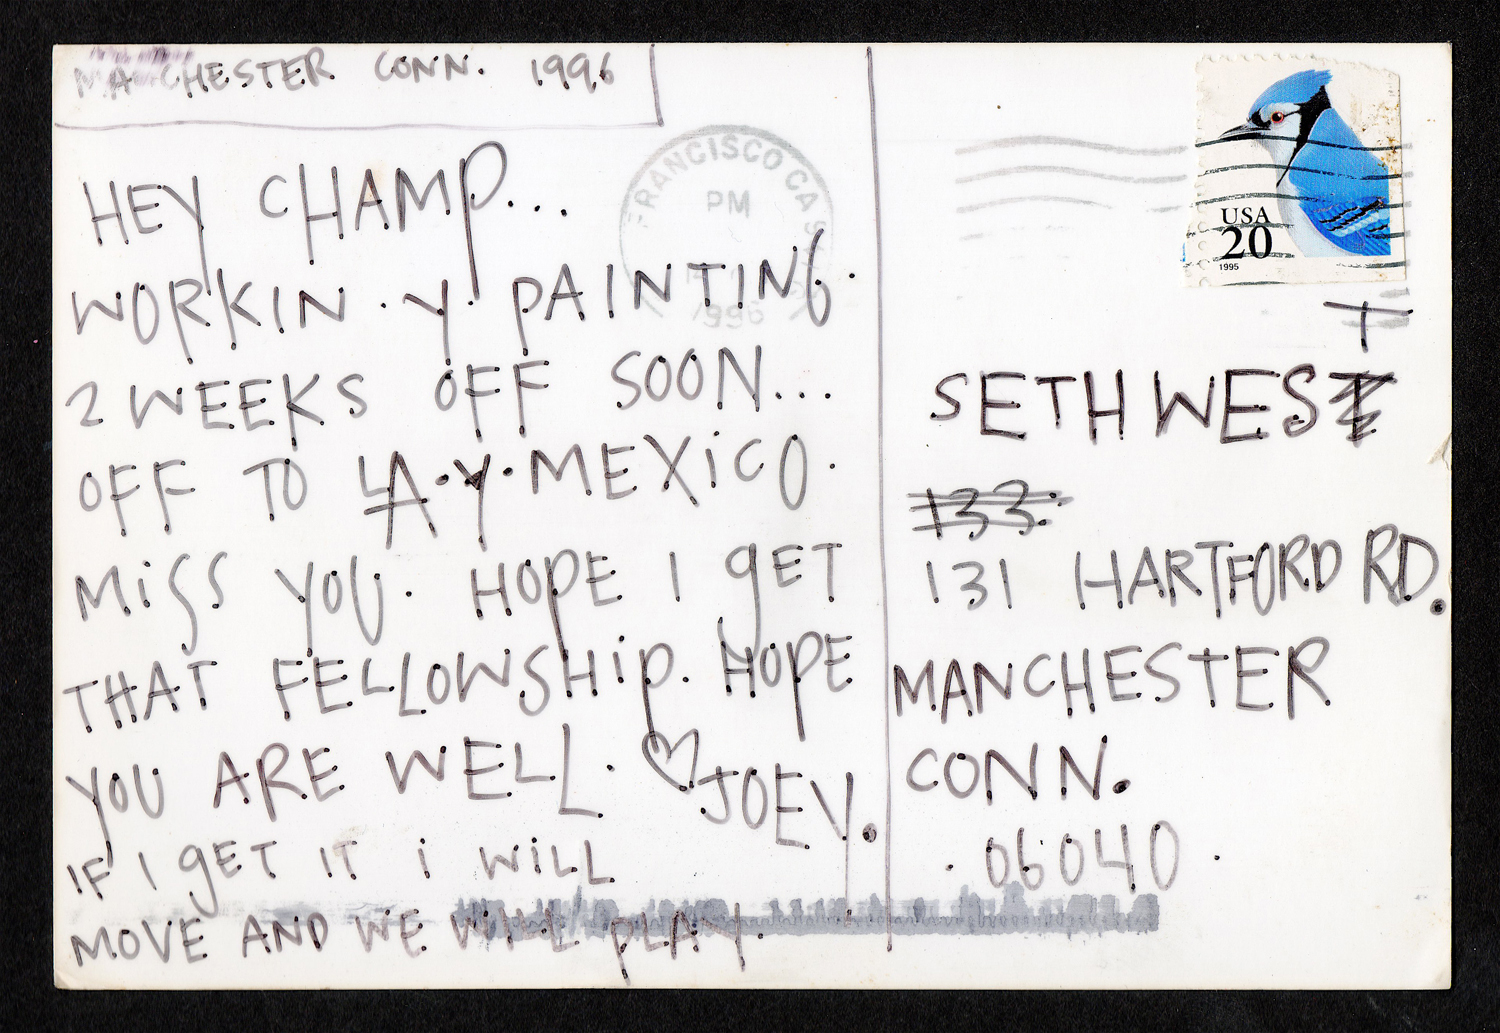 MANCHESTER CONN. 1996
HEY CHAMP...
WORKIN · Y PAINTING.
2 WEEKS OFF SOON...
OFF TO LA · Y · MEXICO.
MISS YOU. HOPE I GET
THAT FELLOWSHIP. HOPE
YOU ARE WELL. ♡ JOEY.
IF I GET IT I WILL
MOVE AND WE WILL PLAY.
FRANCISCO CA
PM
1996
USA
20
1995
T
SETH WEST
133.
131 HARTFORD RD.
MANCHESTER
CONN.
06040